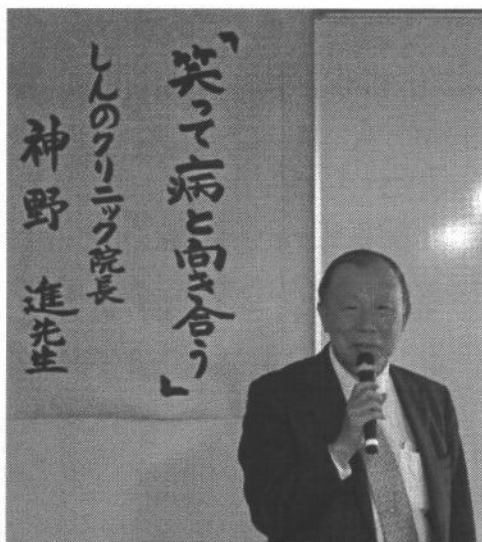 「笑って病と向き合う」
しんのクリニック院長
神野 進先生